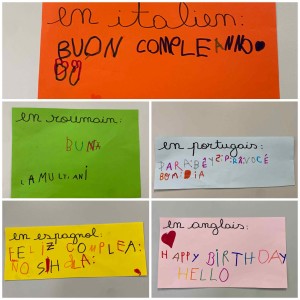 en italien:
BUON COMPLEANNO
en roumain:
BUNA
LA MULTI ANI
en portugais:
PARABÉYS PARAVOCÉ
BOM DIA
en espagnol:
FELIZ COMPLEA:
NO S HOLA:
en anglais:
HAPPY BIRTHDAY
HELLO